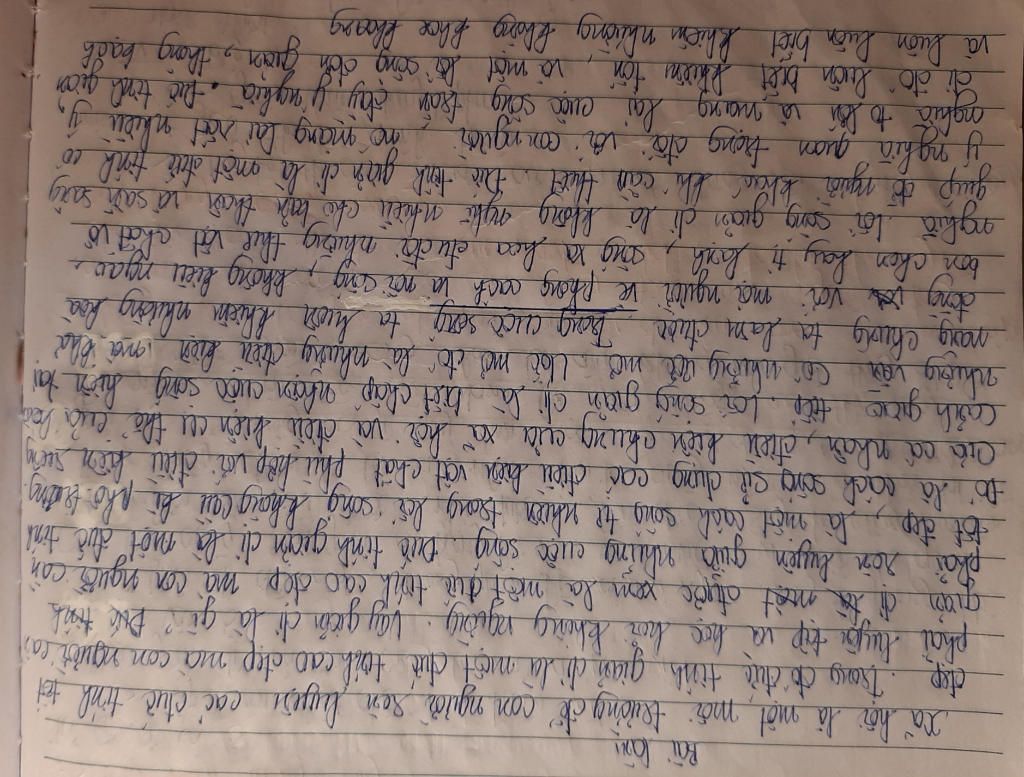 Bài làm
Xã hội là một môi trường để con người rèn luyện các đức tính tốt
đẹp. Trong đó đức tính giản dị là một đức tính cao đẹp mà con người ta
phải luyện tập và học hỏi không ngừng. Vậy giản dị là gì? Đức tính
giản dị là một được xem là một đức tính cao đẹp mà con người cần
phải rèn luyện giữa những cuộc sống. Đức tính giản dị là một đức tính
tốt đẹp, là một cách sống tự nhiên trong lối sống không cầu kì phô trương.
Đó là cách sống sử dụng các điều kiện vật chất phù hợp với điều kiện sống
của cá nhân, điều kiện chung của xã hội và điều kiện cụ thể của hoàn
cảnh giao tiếp. Lối sống giản dị là biết chấp nhận cuộc sống hiện tại
nhưng vẫn có những ước mơ. Ước mơ đó là những điều kiện mà khả
năng chúng ta làm được. Trong cuộc sống ta luôn khiêm nhường hoà
đồng với mọi người về phong cách và nói sống, không kiêu ngạo,
bon chen hay tị hành, sống xa hoa đua đòi những thứ vật chất vô
nghĩa. Lối sống giản dị là không nghĩ nhiều cho bản thân và sẵn sàng
giúp đỡ người khác khi cần thiết. Đức tính giản dị là một đức tính có
ý nghĩa quan trọng đối với con người, nó mang lại rất nhiều ý
nghĩa to lớn và mang lại cuộc sống tràn đầy ý nghĩa. Đức tính giản
dị đó luôn biết khiêm tốn, và một lối sống đơn giản, thông bạch
và luôn luôn biết khiêm nhường không khoe khoang